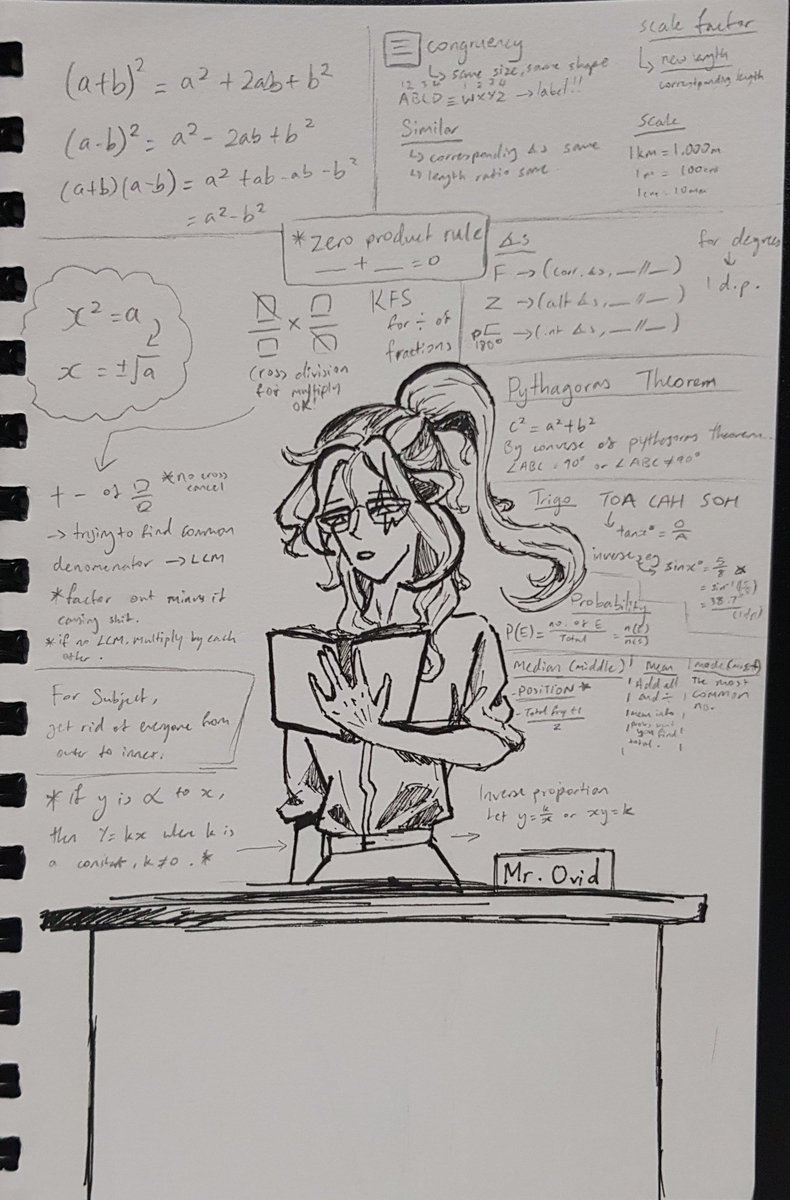 (a+b)² = a² + 2ab + b²
(a-b)² = a² - 2ab + b²
(a+b)(a-b) = a² + ab - ab - b²
= a² - b²
congruency
↳ same size, same shape
1 2 3 4 1 2 3 4
ABCD ≡ WXYZ → label!!
Similar
↳ corresponding ∠s same
↳ length ratio same
scale factor
↳ new length
corresponding length
Scale
1km = 1,000m
1m = 100cm
1cm = 10mm
*zero product rule
__ + __ = 0
∠s
F → (corr. ∠s, __ // __)
Z → (alt ∠s, __ // __)
C → (int ∠s, __ // __)
180°
for degrees
↓
1 d.p.
x² = a
x = ±√a
□/□ × □/□
cross division
for multiply
OK!
KFS
for ÷ of
fractions
Pythagoras Theorem
c² = a² + b²
By converse of pythagoras theorem.
∠ABC = 90° or ∠ABC ≠ 90°
+ - of □/□ *no cross
cancel
→ trying to find common
denomenator → LCM
*factor out minus if
coming shit.
*if no LCM, multiply by each
other.
Trigo TOA CAH SOH
tanx° = O/A
inverse eg
sinx° = 5/8
= sin⁻¹(5/8)
= 38.7°
(1dp)
Probability
P(E) = no. of E / Total = n(E)/n(S)
Median (middle)
-POSITION *
-Total frq +1
2
Mean
Add all
and ÷
total.
mode (most)
The most
common
no.
For Subject,
get rid of everyone from
outer to inner.
*if y is ∝ to x,
then y = kx where k is
a constant, k ≠ 0. *
Inverse proportion
Let y = k/x or xy = k
Mr. Ovid